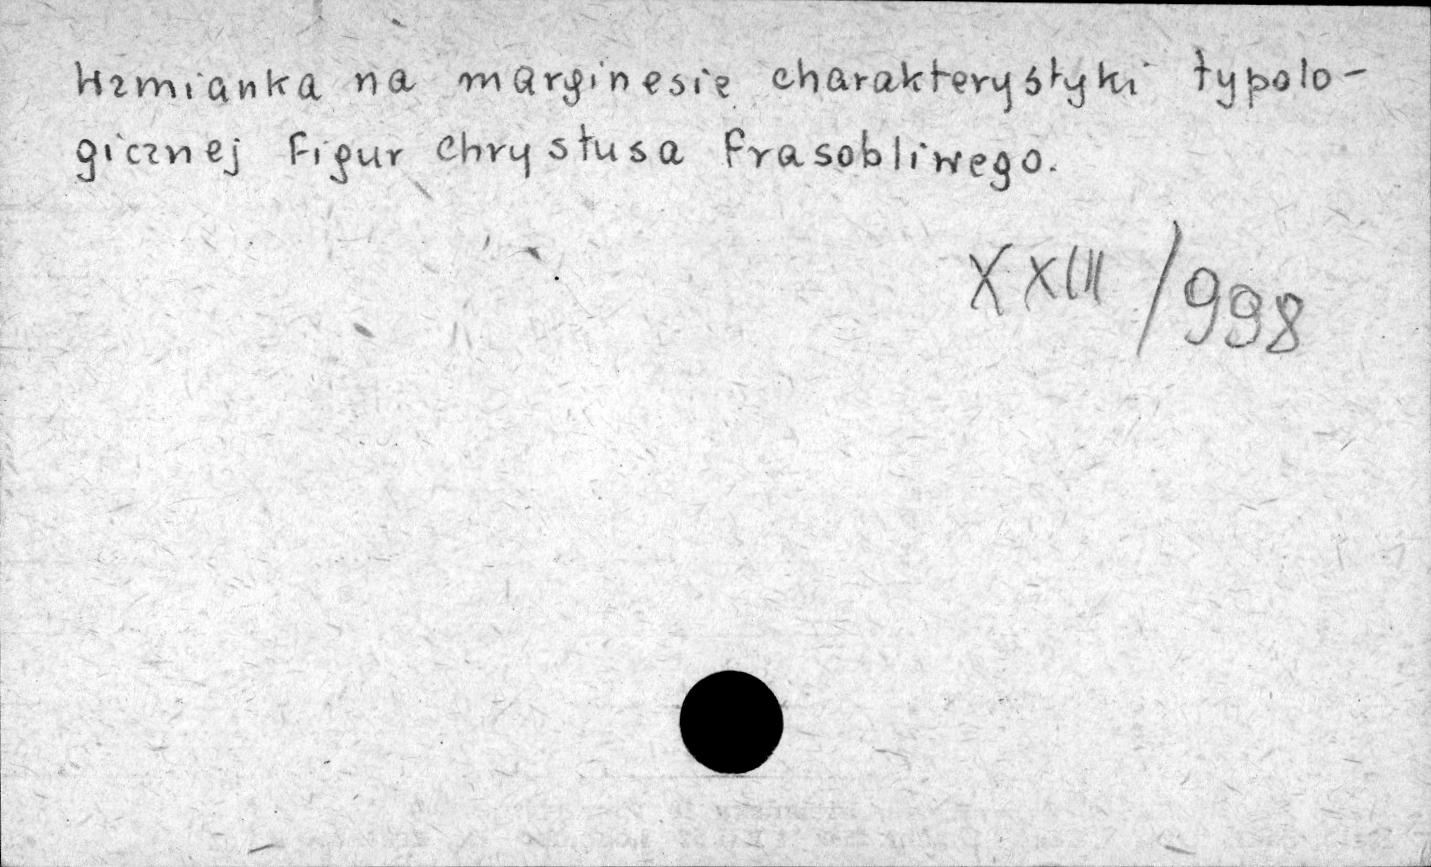 Wzmianka na marginesie charakterystyki typolo-
gicznej figur Chrystusa Frasobliwego.
XXIII/998